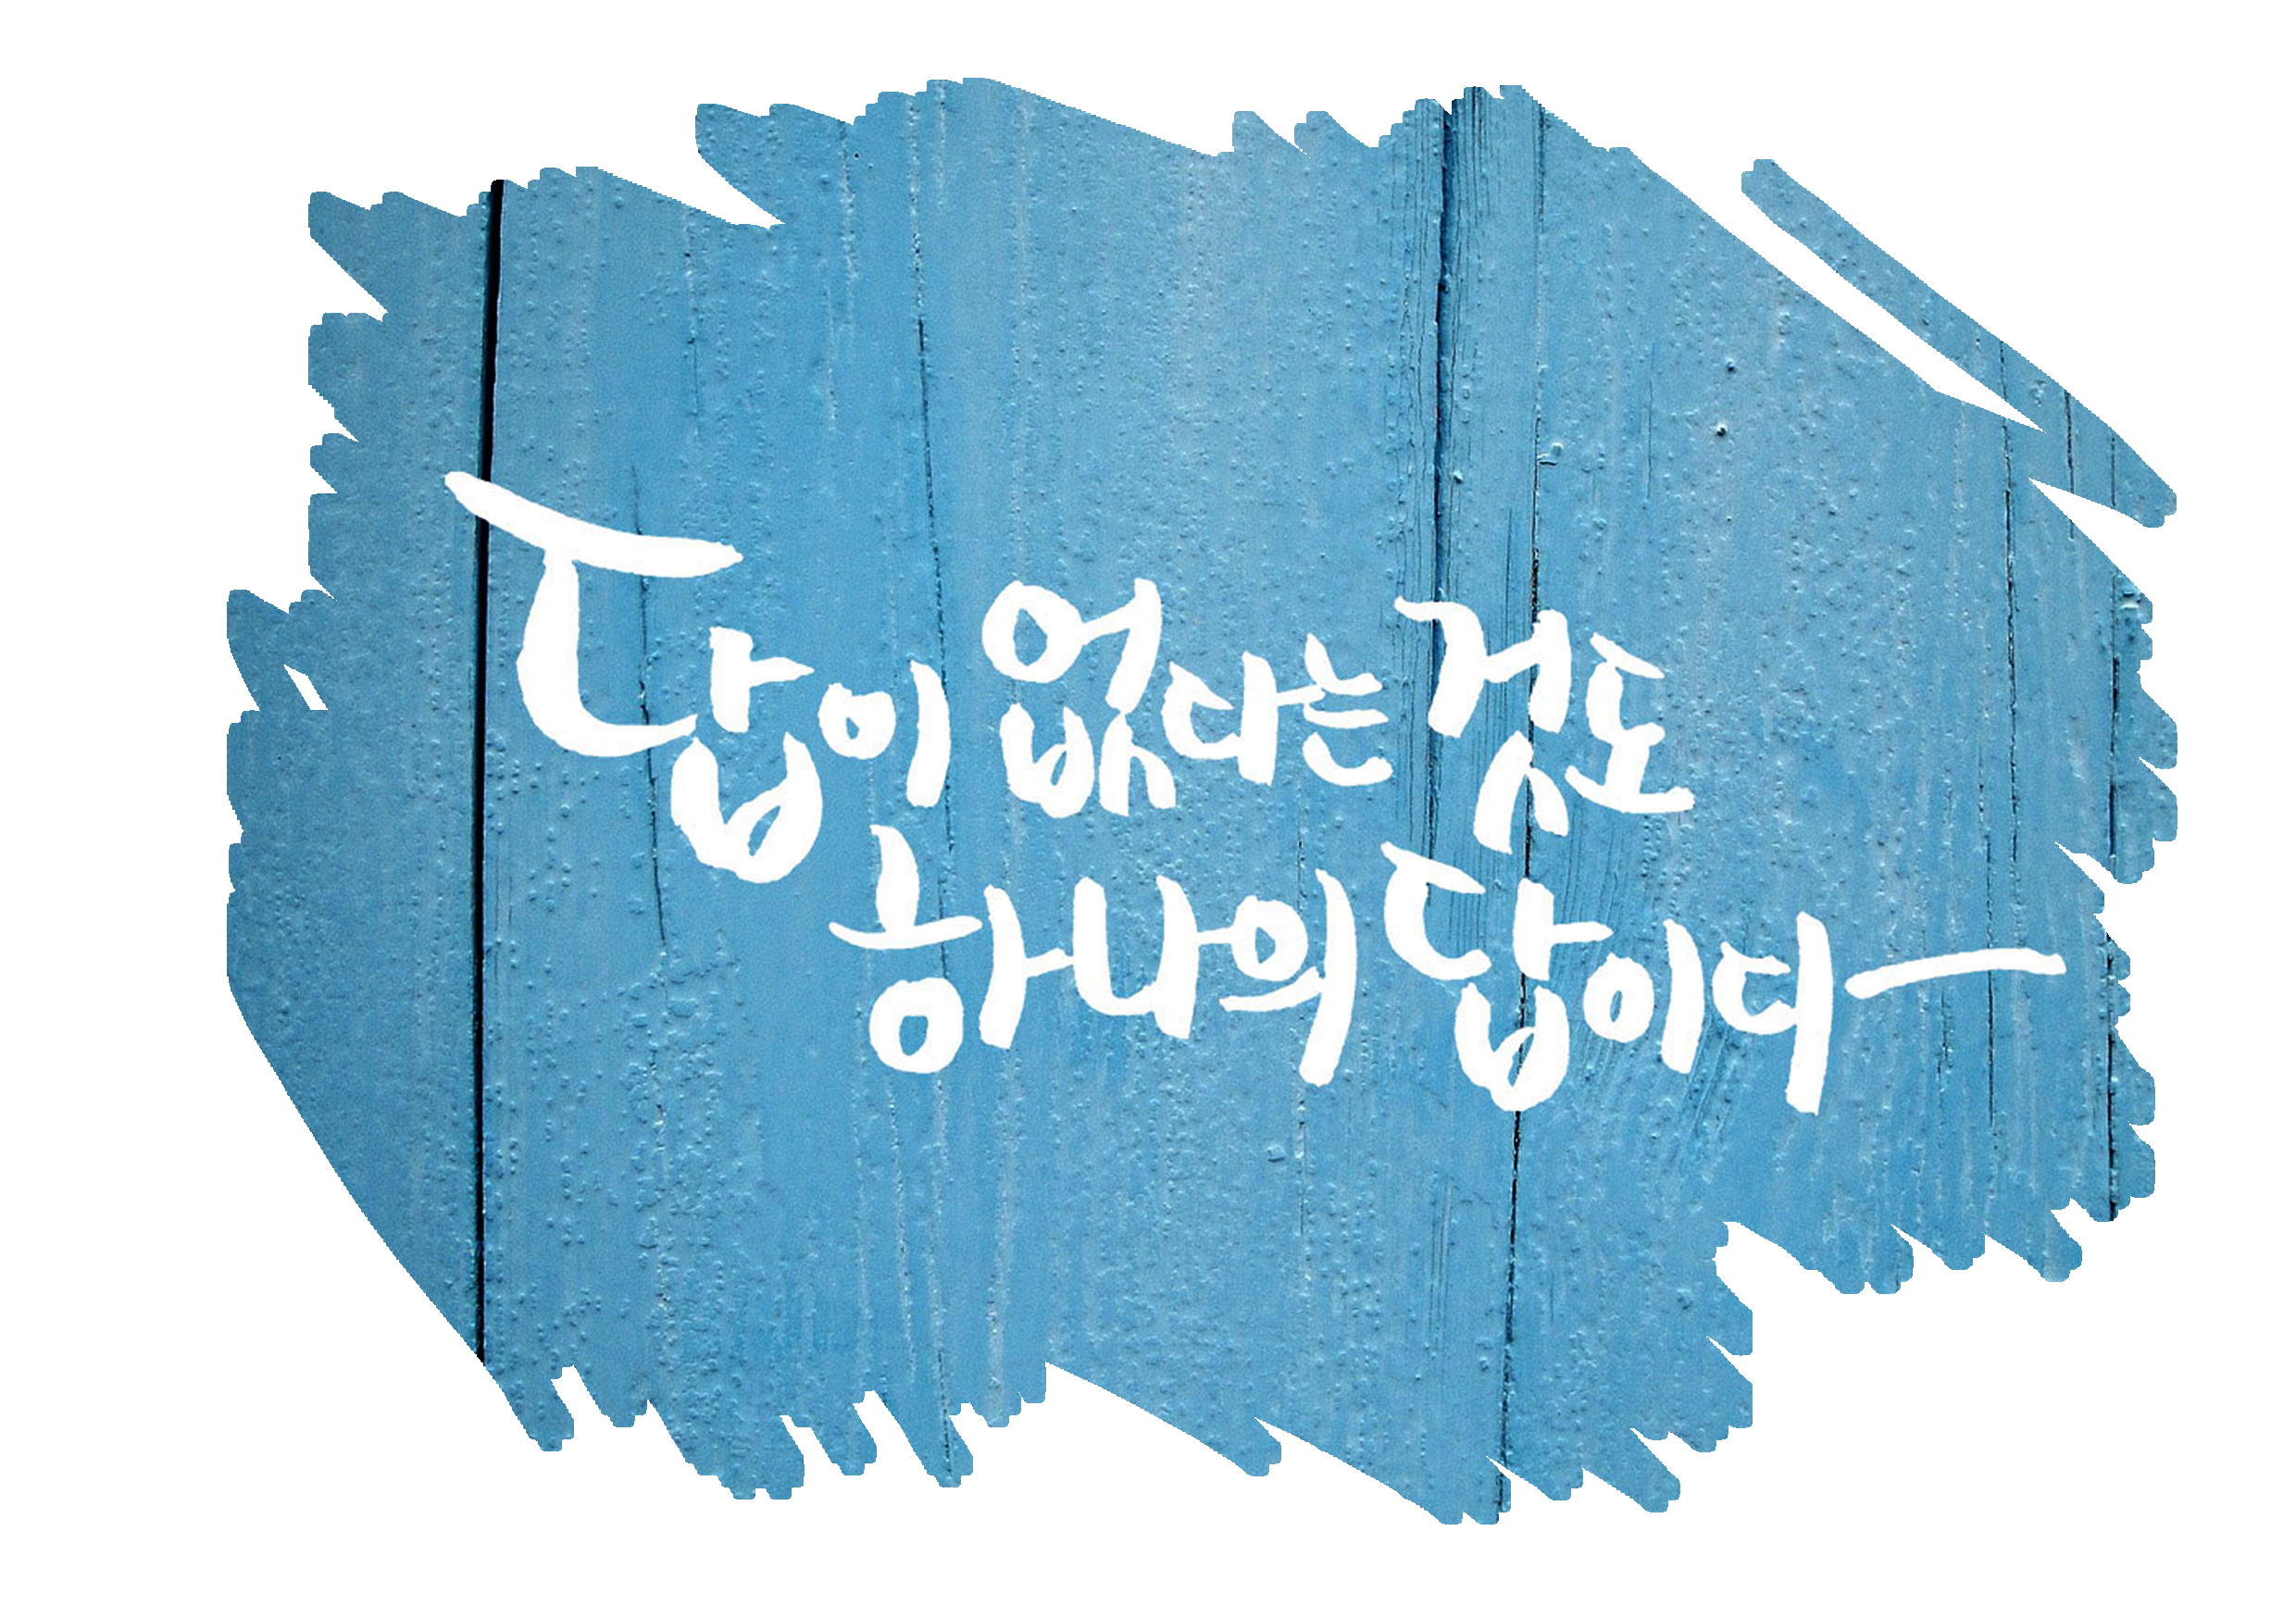 답이 없다는 것도
하나의 답이다